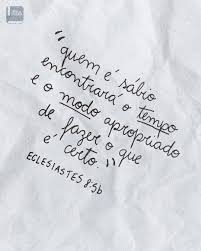 "quem é sábio
encontrará o tempo
e o modo apropriado
de fazer o que
é certo."
ECLESIASTES 8:5b